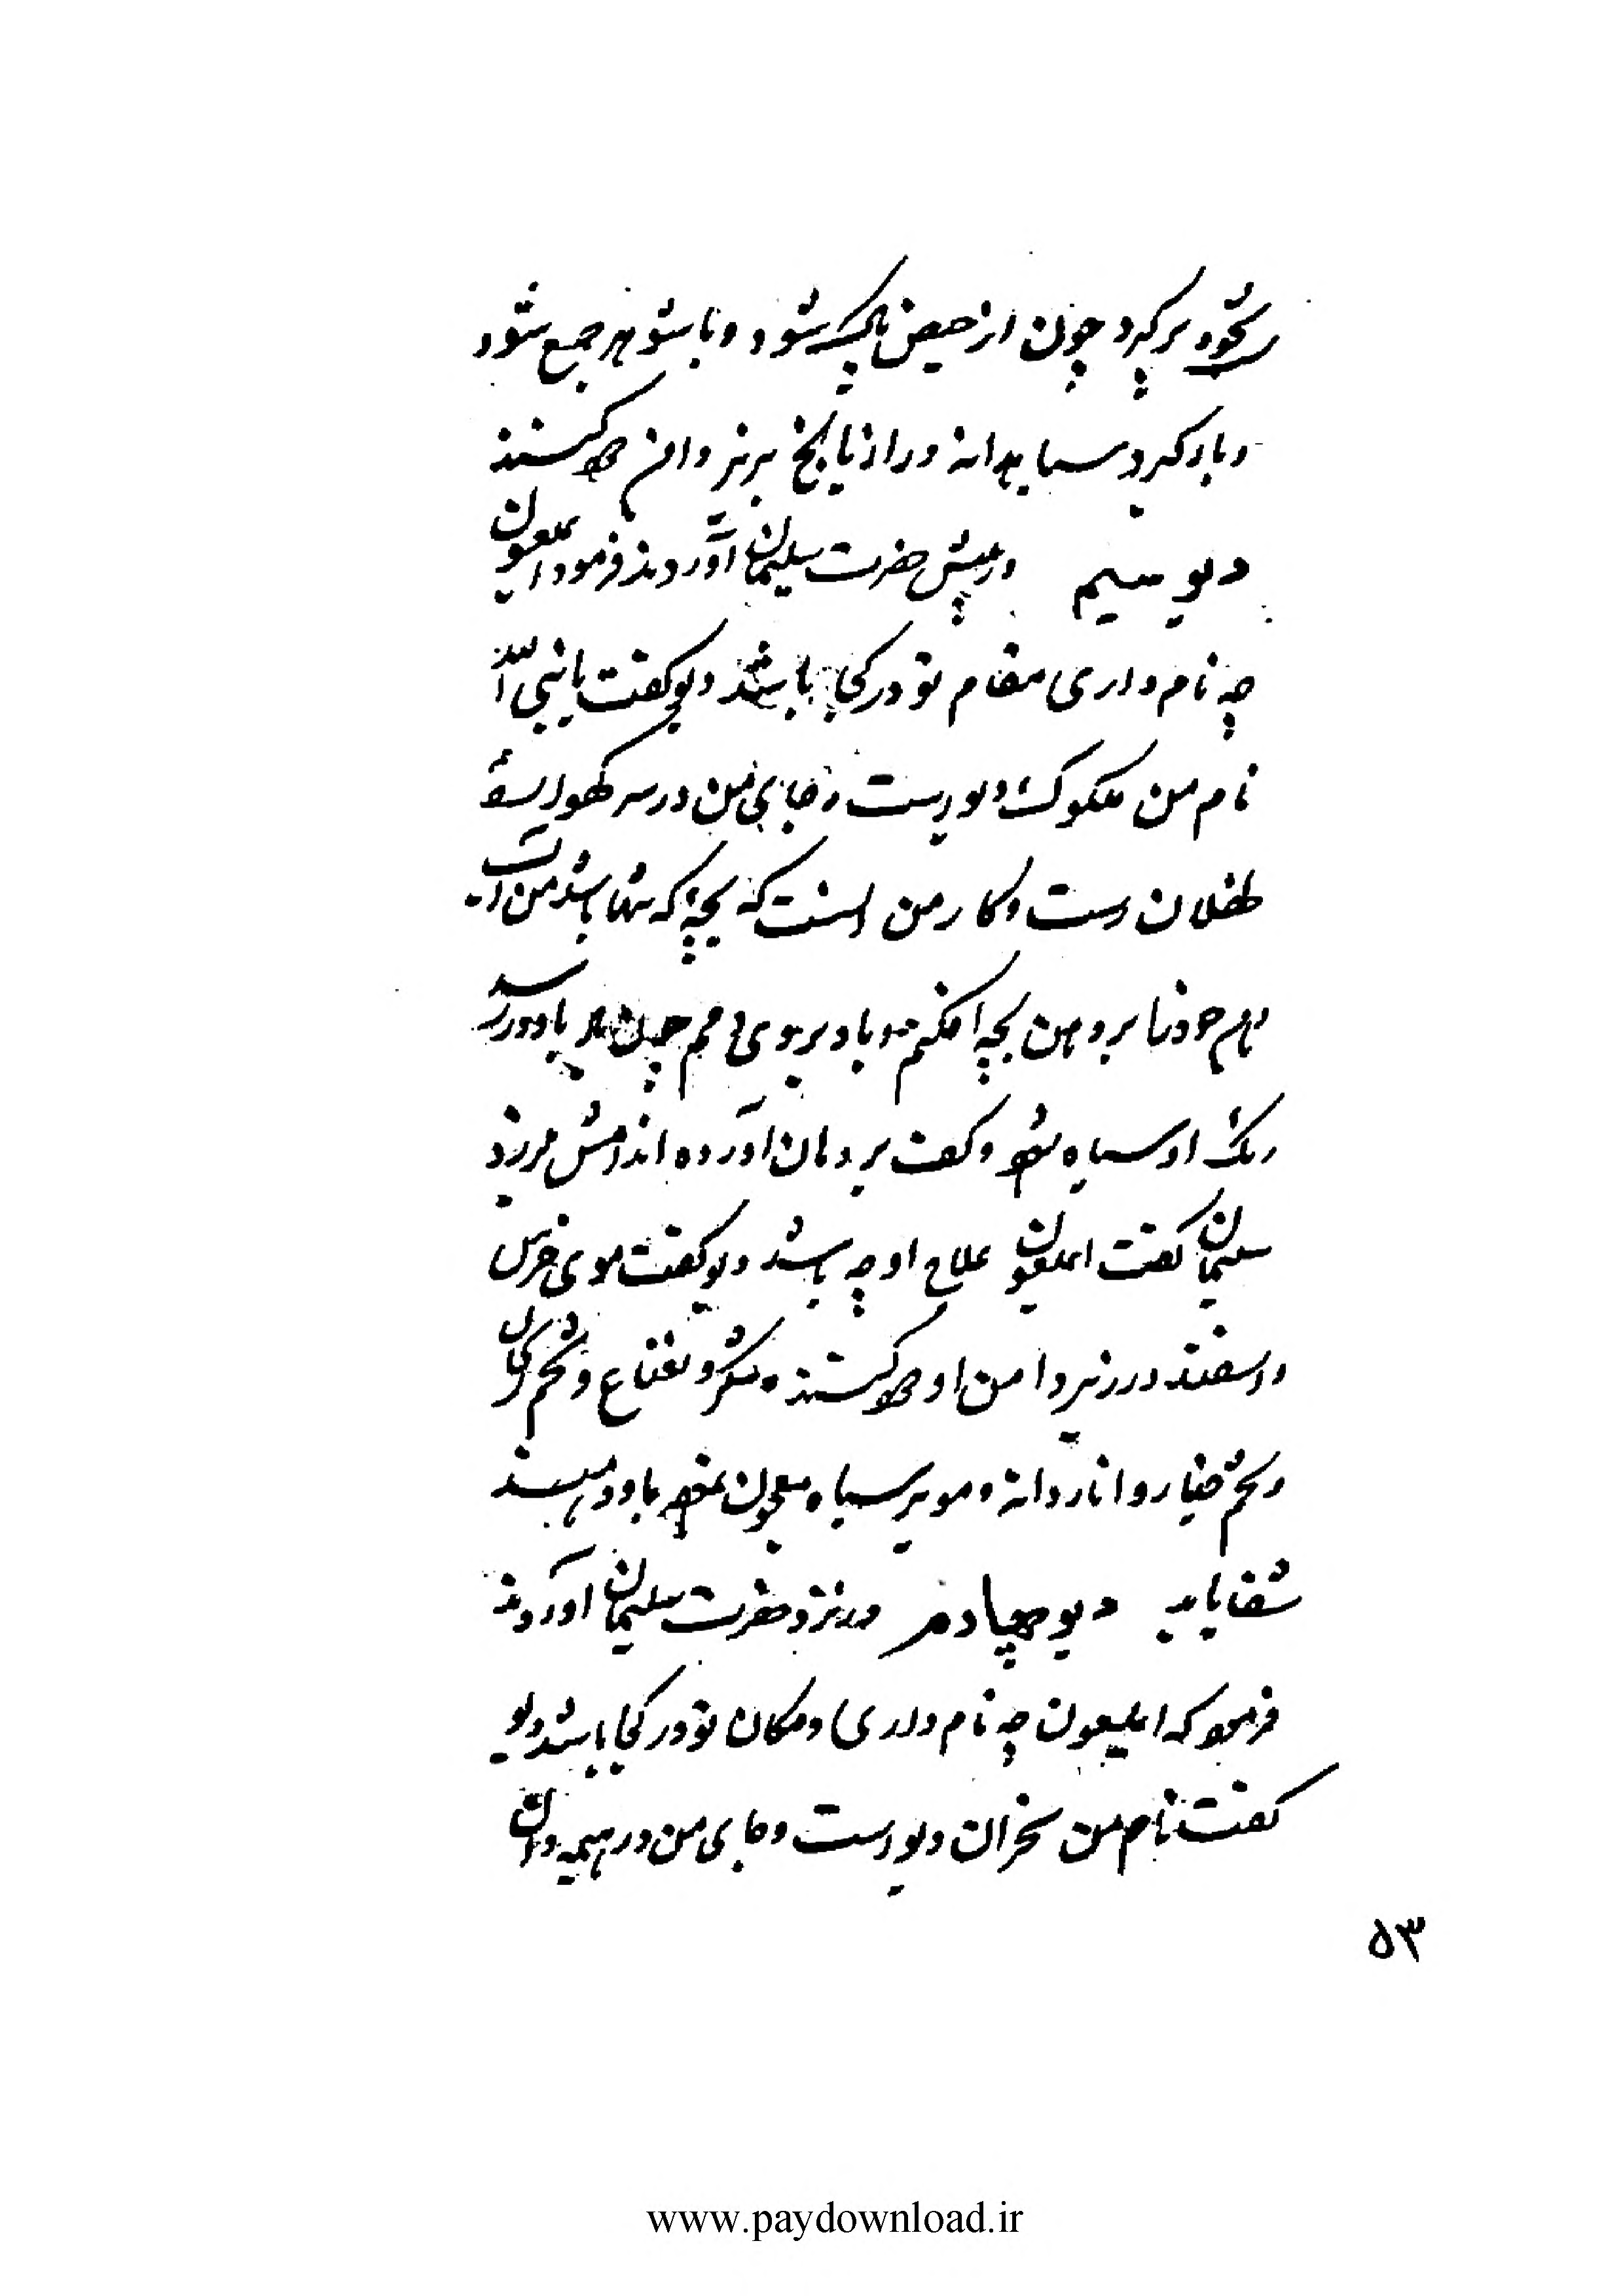 برگیرد چون از حیض پاک شود و با شوهر جمع شود
و باد گیرد سیاهدانه و رازیانج برنر دامن دود کنند
دیو سیم در پیش حضرت سلیمان آوردند فرمود ایملعون
چه نام داری مقام تو در کجا باشد دیو گفت یا نبی الله
نام من دیو است و جای من در سر کهواره
طفلان است و کار من آنست که بچه که تنها باشد من
خود را بر و من بچه افکنم و باد بر وی دمم چون باد در رسد
رنگ او سیاه شود و کف بر دهان آورده اندامش لرزد
سلیمان گفت ایملعون علاج او چه باشد دیو گفت موی خرس
و اسفند در زیر دامن او دود کنند و شکر و نعناع و تخم
و تخم خیار و انار دانه و مویز سیاه معجون نموده باو دهند
شفا یابد دیو چهارم در نزد حضرت سلیمان آوردند
فرمود که ایملعون چه نام داری و مکان تو در کجا باشد دیو
گفت نام من دیو است و جای من در
۵۳
www.paydownload.ir